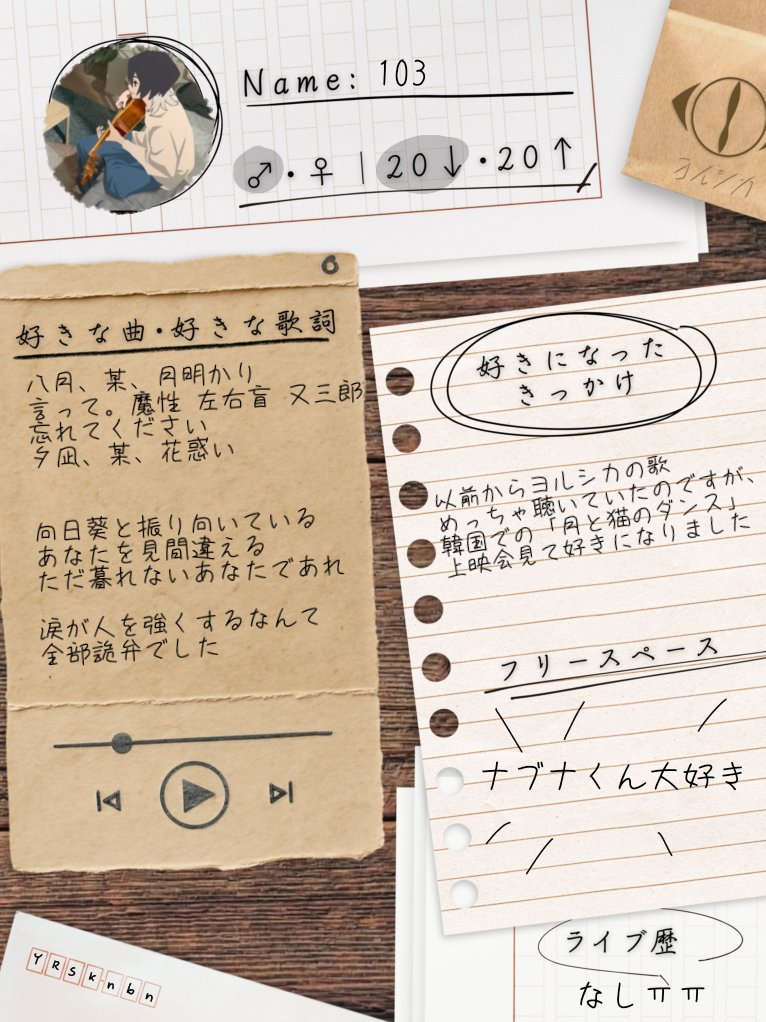 Name: 103
♂・♀ | 20↓・20↑
ヨルシカ
好きな曲・好きな歌詞
八月、某、月明かり
言って。魔性 左右盲 又三郎
忘れてください
夕凪、某、花惑い
向日葵と振り向いている
あなたを見間違える
ただ暮れないあなたであれ
涙が人を強くするなんて
全部詭弁でした
好きになった
きっかけ
以前からヨルシカの歌
めっちゃ聴いていたのですが、
韓国での「月と猫のダンス」
上映会見て好きになりました
フリースペース
ナブナくん大好き
ライブ歴
なしㅠㅠ
YRSknbn